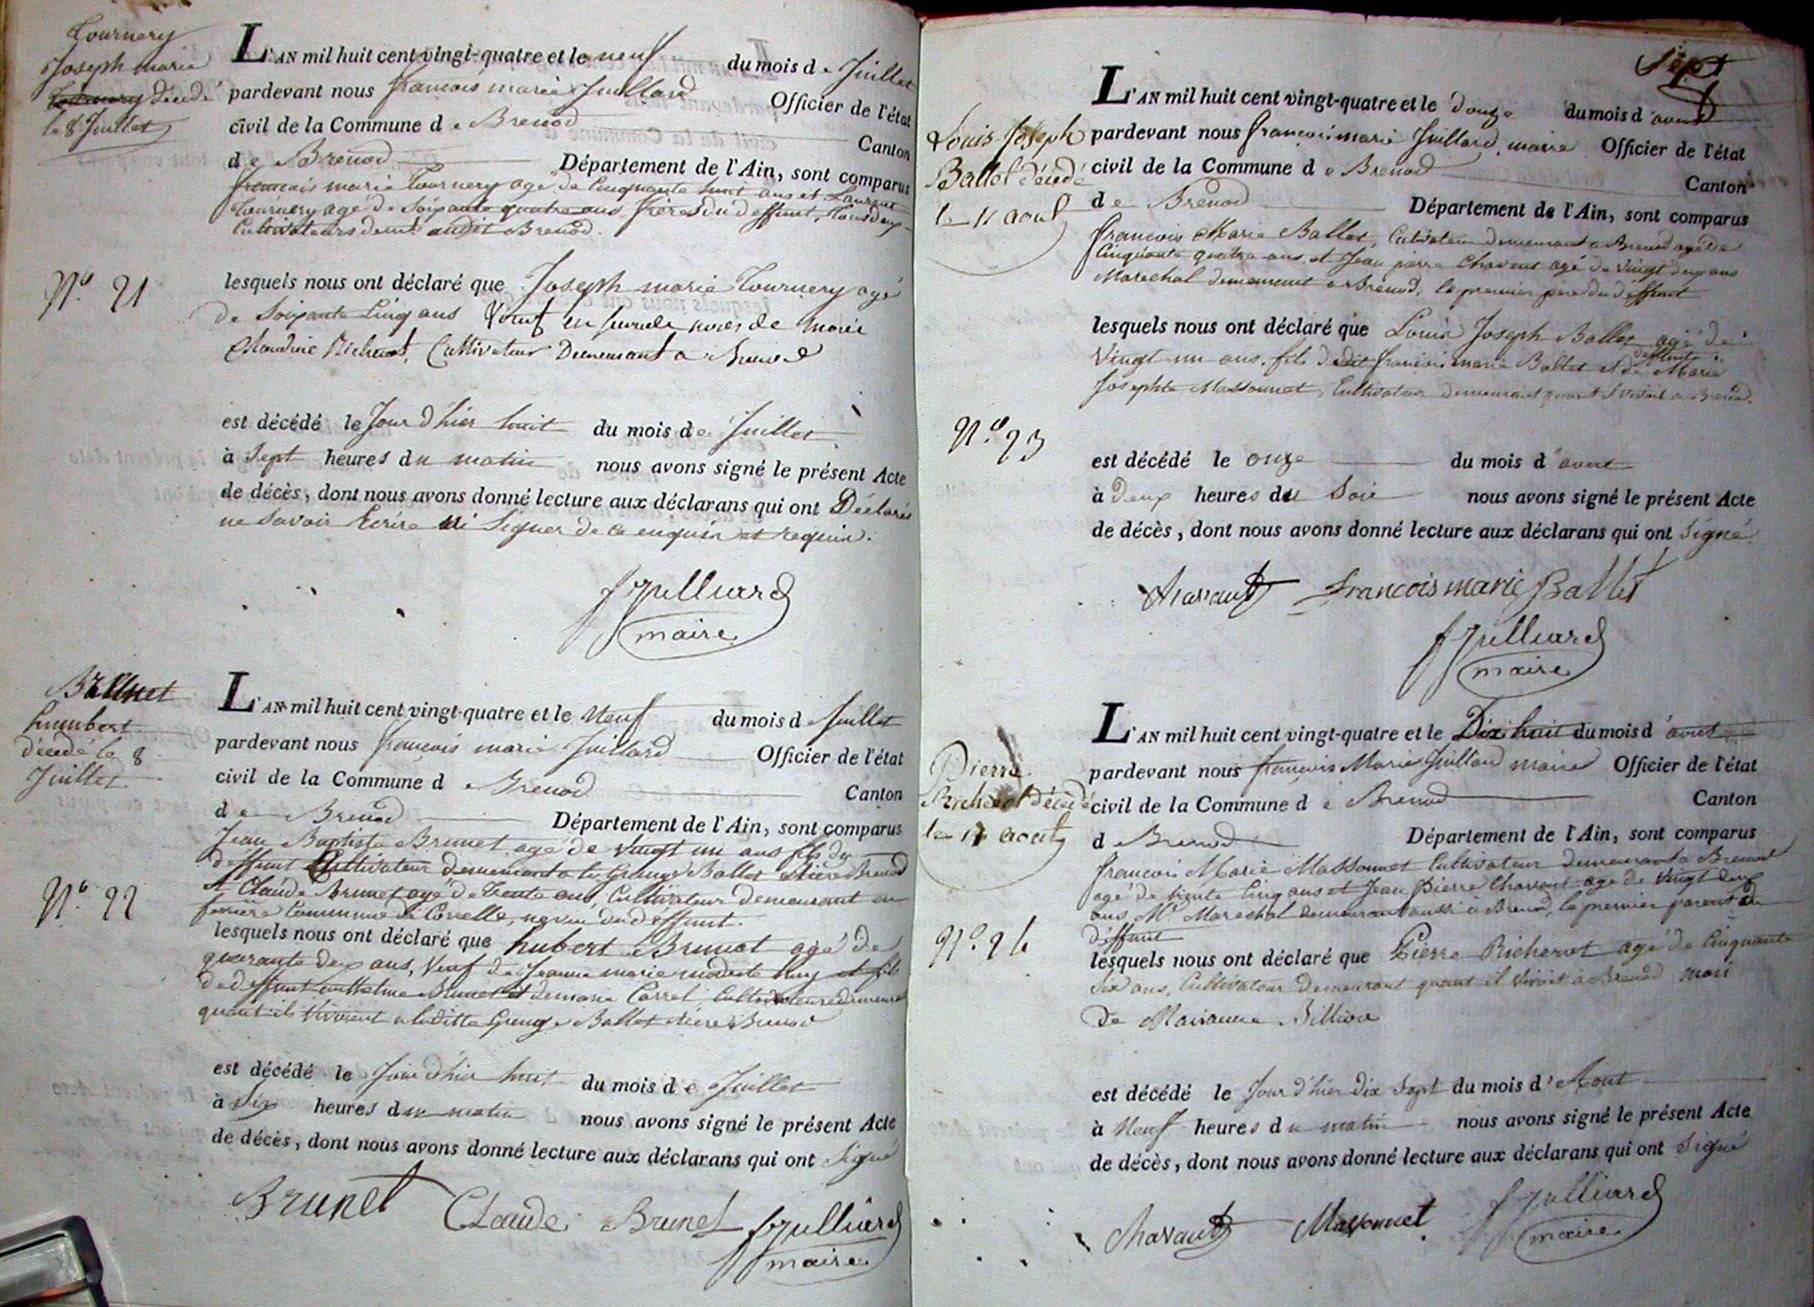 Tournery
Joseph marie
Tournery décédé
le 8 Juillet
L'AN mil huit cent vingt-quatre et le neuf du mois de Juillet
pardevant nous françois marie Juillard Officier de l'état
civil de la Commune de Brenod Canton
de Brenod Département de l'Ain, sont comparus
françois marie Tournery agé de Cinquante huit ans et Laurent
Tournery agé de Soixante quatre ans frères du deffunt, tous deux
Cultivateurs demt audit Brenod.
N.º 21
lesquels nous ont déclaré que Joseph marie Tournery agé
de Soixante Cinq ans Veuf en secondes noces de marie
Claudine Richerot, Cultivateur Demeurant a Brenod
est décédé le Jour d'hier huit du mois de Juillet
à Sept heures du matin nous avons signé le présent Acte
de décès, dont nous avons donné lecture aux déclarans qui ont Déclarés
ne Savoir Ecrire ni Signer de ce enquis et requis.
fJuilliard
maire
Brunet
humbert
décédé le 8
Juillet
L'AN mil huit cent vingt-quatre et le Neuf du mois de Juillet
pardevant nous françois marie Juillard Officier de l'état
civil de la Commune de Brenod Canton
de Brenod Département de l'Ain, sont comparus
Jean Baptiste Brunet agé de vingt un ans fils du
deffunt Cultivateur demeurant a la Grange Ballet Brenod
et Claude Brunet agé de Trente ans, Cultivateur demeurant en
ferrière Commune de Corcelle, neveu dud deffunt.
N.º 22
lesquels nous ont déclaré que hubert Brunet agé de
quarante deux ans, Veuf de Jeanne marie modeste huy et fils
de deffunt Brunet et de marie Carrel, Cultivateur demeurant
quant ils vivoient a laditte Grange Ballet Brenod
est décédé le Jour d'hier huit du mois de Juillet
à Six heures du matin nous avons signé le présent Acte
de décès, dont nous avons donné lecture aux déclarans qui ont Signé
Brunet Claude Brunet fJuilliard
maire
Sept
L'AN mil huit cent vingt-quatre et le Douze du mois d'aout
pardevant nous françois marie Juillard, maire Officier de l'état
Louis Joseph
Ballet décédé
le 11 aout
civil de la Commune de Brenod Canton
de Brenod Département de l'Ain, sont comparus
francois Marie Ballet, Cultivateur demeurant a Brenod agé de
Cinquante quatre ans, et Jean pierre Chavent agé de Vingt deux ans
Marechal demeurant a Brenod, le premier père du deffunt
lesquels nous ont déclaré que Louis Joseph Ballet agé de
Vingt un ans, fils dudit francois marie Ballet et de deffunte Marie
Josephte Massonnet, Cultivateur demeurant quant il vivoit a Brenod.
N.º 23
est décédé le onze du mois d'aout
à Deux heures du Soir nous avons signé le présent Acte
de décès, dont nous avons donné lecture aux déclarans qui ont Signé.
Chavant francois marie Ballet
fJuilliard
maire
L'AN mil huit cent vingt-quatre et le Dix huit du mois d'aout
pardevant nous françois Marie Juillard maire Officier de l'état
Pierre
Richerot décédé
le 17 aout
civil de la Commune de Brenod Canton
d Brenod Département de l'Ain, sont comparus
françois Marie Massonnet Cultivateur demeurant a Brenod
agé de trente Cinq ans et Jean Pierre Chavent agé de Vingt deux
ans, Mre Marechal demeurant aussi à Brenod, le premier parent du
deffunt
N.º 24
lesquels nous ont déclaré que Pierre Richerot agé de Cinquante
Six ans, Cultivateur demeurant quant il vivoit à Brenod mari
De Marianne Billion
est décédé le Jour d'hier Dix Sept du mois d'Aout
à Neuf heures du matin nous avons signé le présent Acte
de décès, dont nous avons donné lecture aux déclarans qui ont Signé
Chavant Massonnet fJuilliard
maire